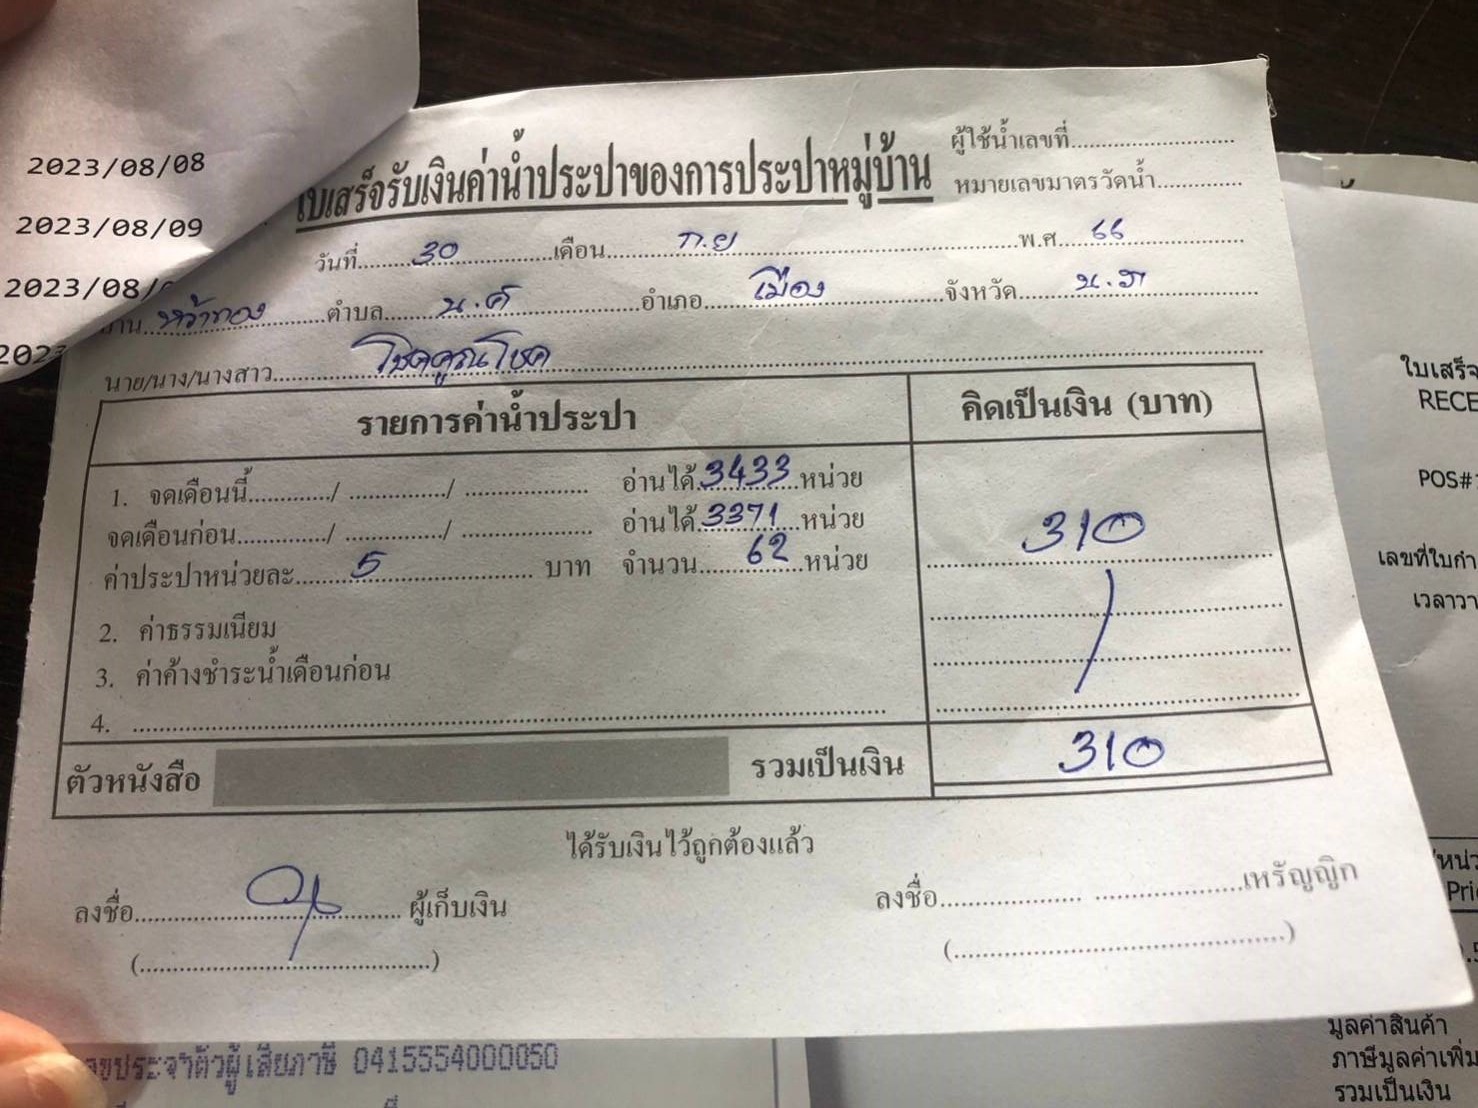 2023/08/08
2023/08/09
2023/08/
2023
ใบเสร็จรับเงินค่าน้ำประปาของการประปาหมู่บ้าน
ผู้ใช้น้ำเลขที่
หมายเลขมาตรวัดน้ำ
วันที่ 30 เดือน ก.ย พ.ศ. 66
ตำบล น.ค อำเภอ เมือง จังหวัด
นาย/นาง/นางสาว โชคคูณโชค
รายการค่าน้ำประปา คิดเป็นเงิน (บาท)
1. จดเดือนนี้ / / อ่านได้ 3433 หน่วย
จดเดือนก่อน / / อ่านได้ 3371 หน่วย 310
ค่าประปาหน่วยละ 5 บาท จำนวน 62 หน่วย
2. ค่าธรรมเนียม
3. ค่าค้างชำระน้ำเดือนก่อน
4.
ตัวหนังสือ รวมเป็นเงิน 310
ได้รับเงินไว้ถูกต้องแล้ว
ลงชื่อ ผู้เก็บเงิน ลงชื่อ เหรัญญิก
( ) ( )
ขประจำตัวผู้เสียภาษี 0415554000050
ใบเสร็จ
RECE
POS#
เลขที่ใบกำ
เวลาวา
หน่ว
Pri
มูลค่าสินค้า
ภาษีมูลค่าเพิ่ม
รวมเป็นเงิน